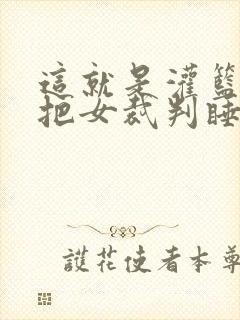 這就是灌籃
把女裁判睡
護花使者本尊